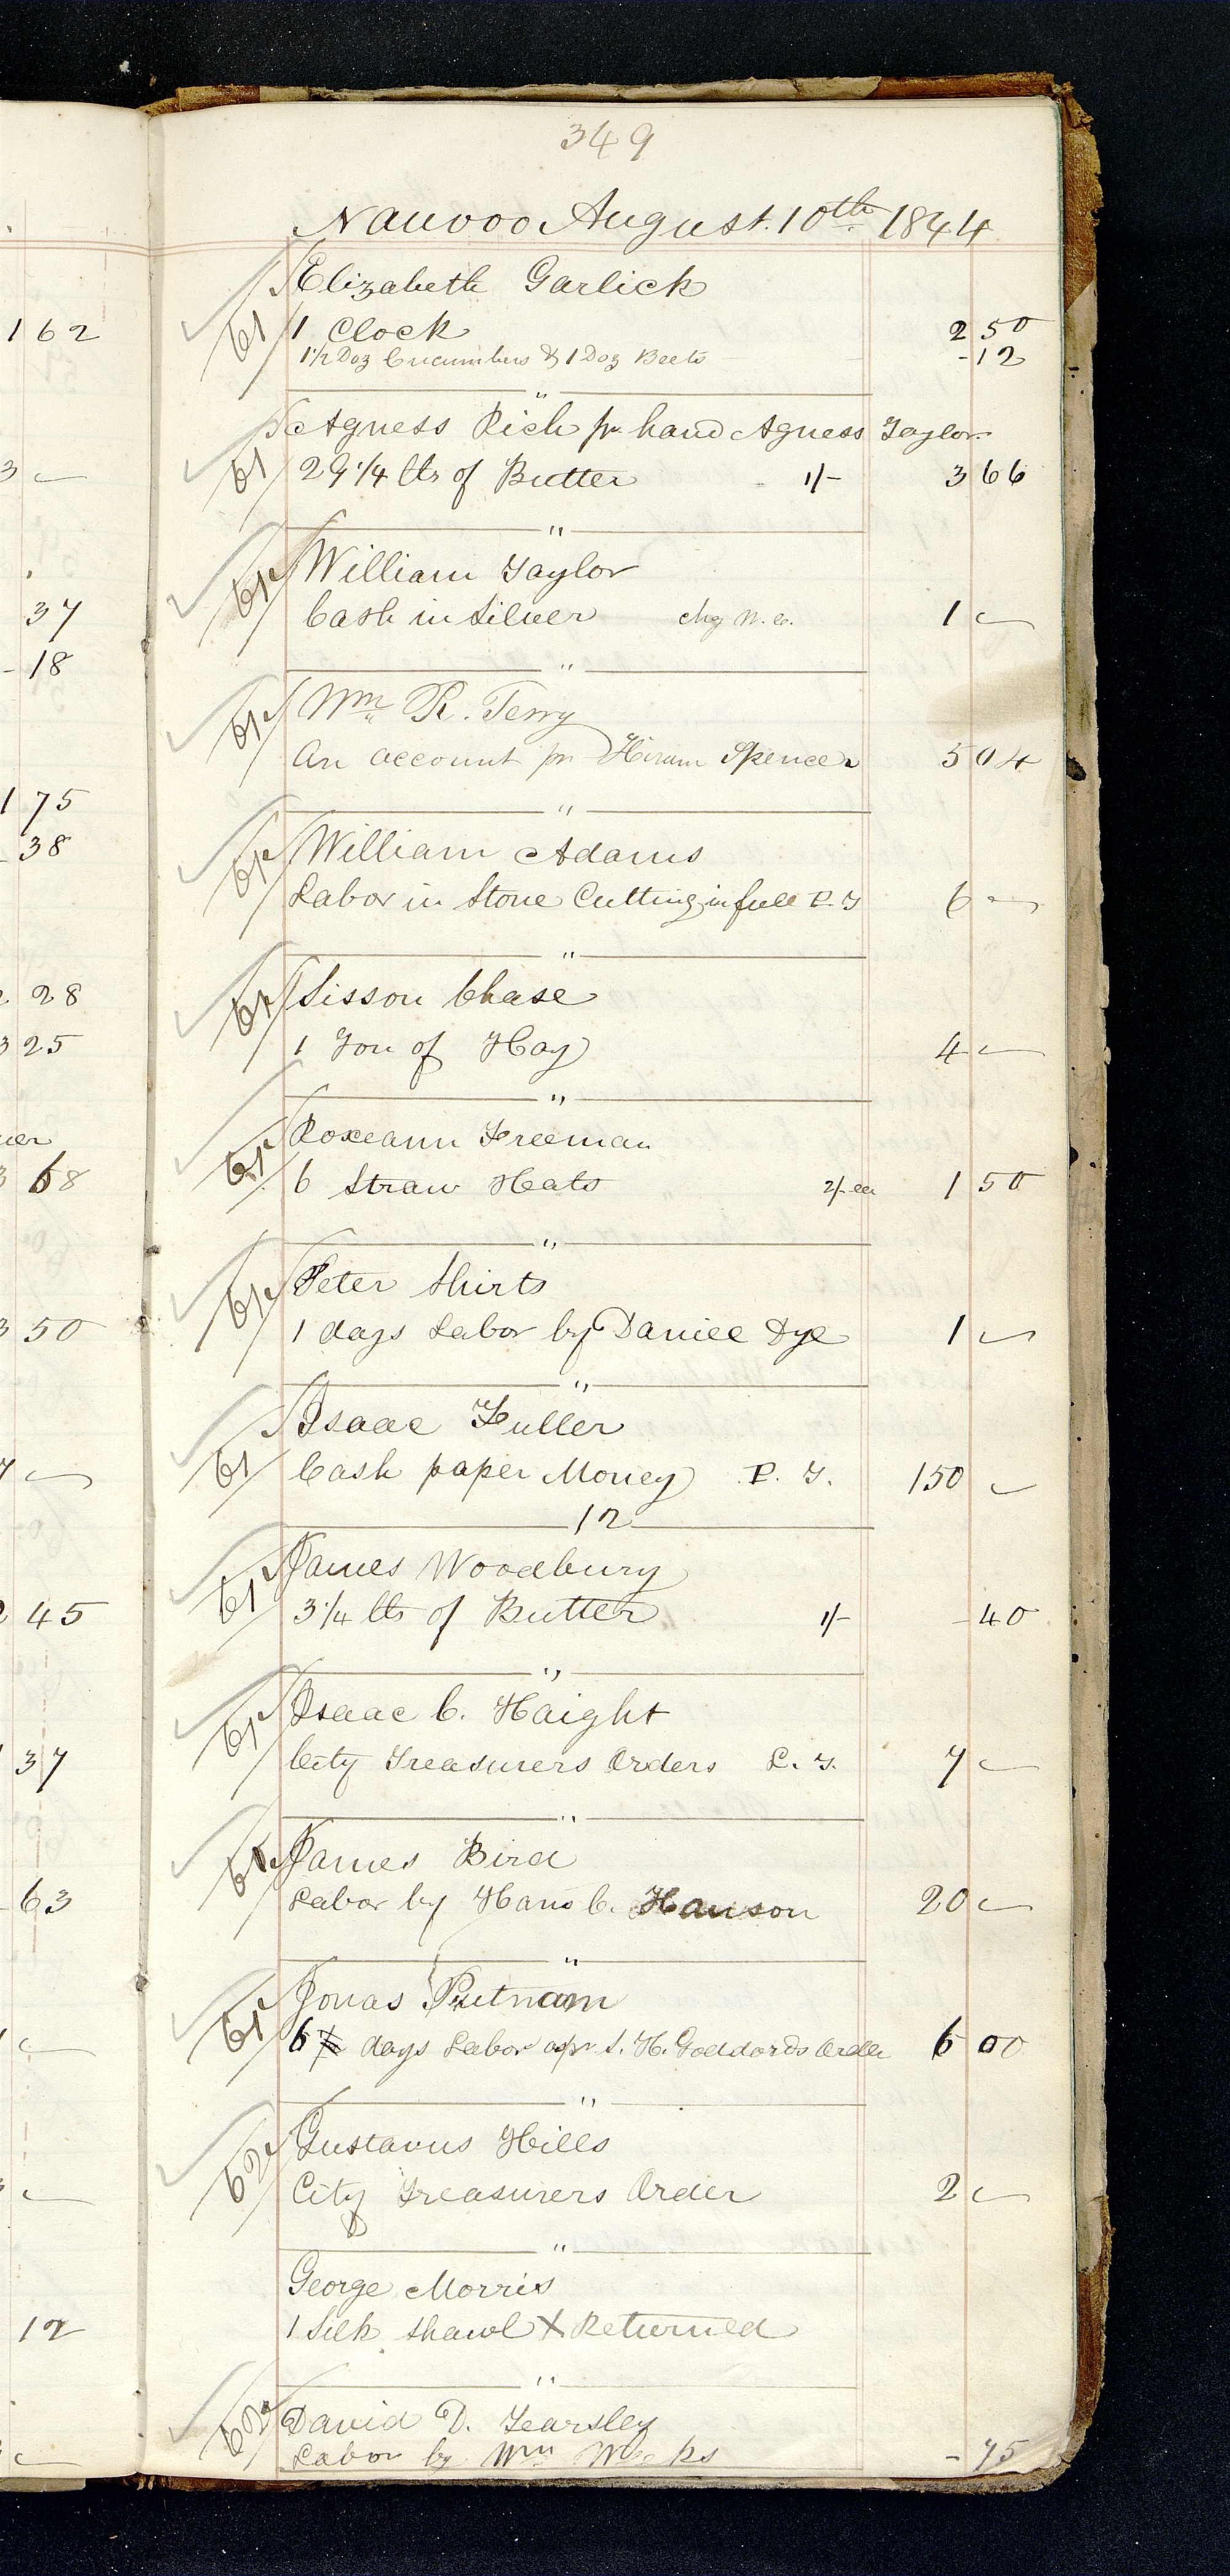 349
Nauvoo August. 10th 1844
Elizabeth Garlick
61 1 Clock 2 50
1 1/2 Doz Cucumbers & 1 Doz Beets -12
"
Agness Rich pr hand Agness Taylor
61 29 1/4 lbs of Butter 1/- 3 66
"
61 William Taylor
Cash in Silver chg W. C. 1 —
"
61 Wm R. Terry
An account pr Hiram Spencer 5 04
"
61 William Adams
Labor in Stone Cutting in full P. T 6 —
"
61 Sisson Chase
1 Ton of Hay 4 —
"
61 Roxeann Freeman
6 Straw Hats 2/- ea 1 50
"
61 Peter Shirts
1 days Labor by Daniel Dye 1 —
"
Isaac Fuller
61 Cash paper Money P. T. 150 —
12
James Woodbury
61 3 1/4 lbs of Butter 1/- -40
"
61 Isaac C. Haight
City Treasurers Orders P. T. 7 —
"
61 James Bird
Labor by Hans C. Hanson 20 —
"
Jonas Putnam
61 6 days Labor as pr S. H. Goddards Order 6 00
"
62 Gustavus Hills
City Treasurers Order 2 —
"
George Morris
1 Silk Shawl X Returned
"
62 David D. Yearsley
Labor by Wm Weeks -75
162
3 —
37
-18
1 75
-38
28
3 25
3 68
3 50
7 —
45
37
-63
12